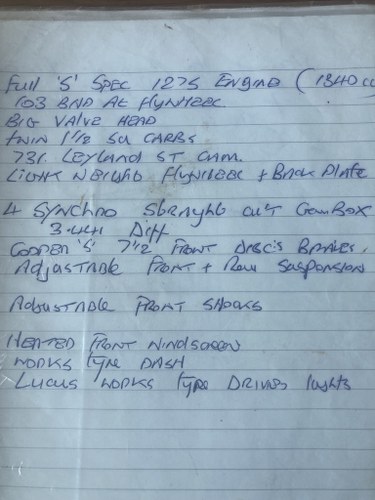 Full 'S' Spec 1275 Engine (1340cc
103 BHP At Flywheel
Big Valve Head
Twin 1 1/2 SU Carbs
731 Leyland ST Cam.
Light Weight Flywheel + Back Plate
4 Synchro Straight Cut GearBox
3.44 Diff
Cooper 'S' 7 1/2 Front Discs Brakes.
Adjustable Front + Rear Suspension
Adjustable Front Shocks
Heated Front Windscreen
Works Type Dash
Lucus Works Type Driving Lights